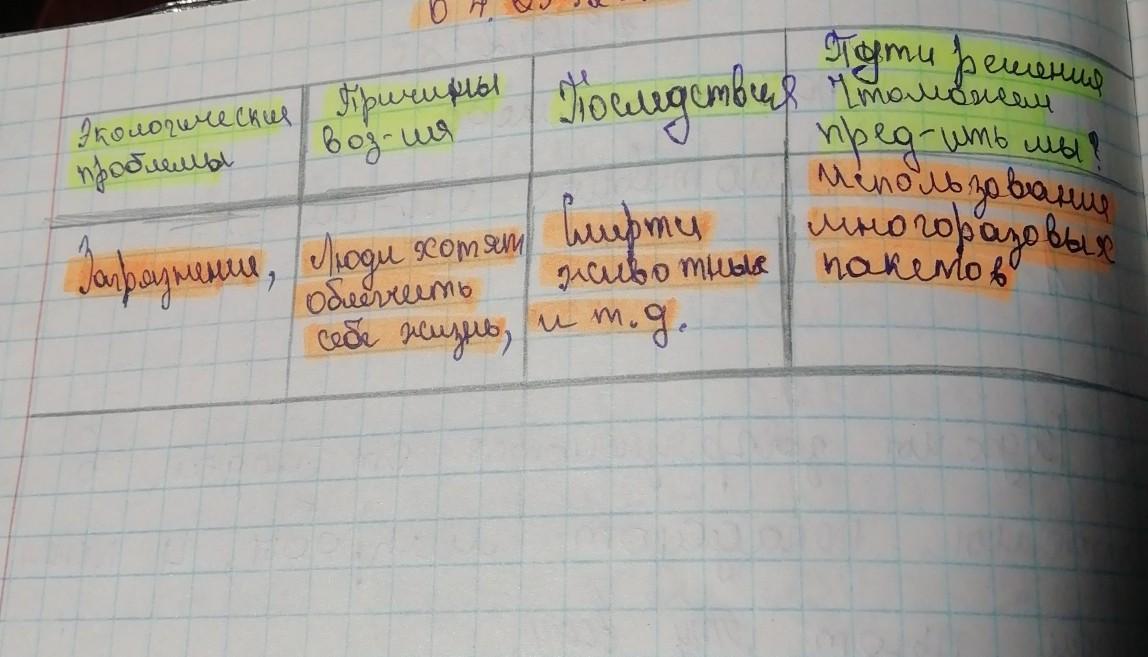 Экологические
проблемы
Причины
воз-ия
Последствия
Пути решения
Что можем
пред-ить мы?
Загрязнение,
Люди хотят
облегчить
себе жизнь,
Смерти
животных
и т.д.
использование
многоразовых
пакетов